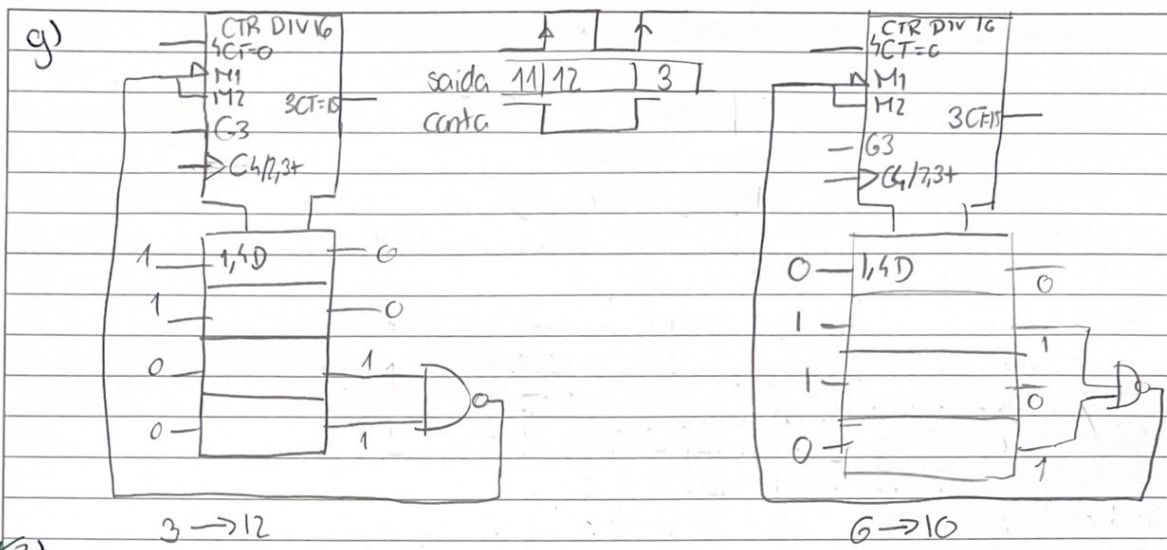 g)
CTR DIV 16
4CT=0
M1
M2
3CT=15
G3
C4/2,3+
1 1,4D 0
1 0
0 1
0 1
3 → 12
saida 11 12 3
conta
CTR DIV 16
4CT=0
M1
M2
3CT=15
G3
C4/2,3+
0 1,4D 0
1 1
1 0
0 1
6 → 10